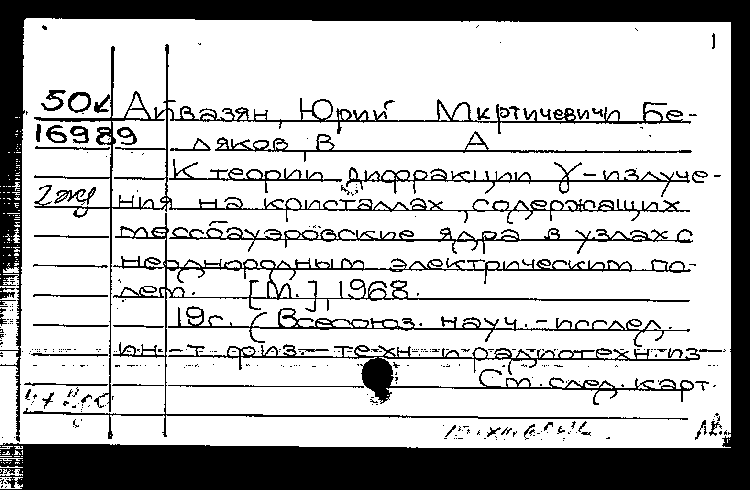 1
50к Айвазян, Юрий Мкртичевич и Бе-
16989 ляков, В А
К теории дифракции γ-излуче-
2 экз ния на кристаллах, содержащих
мессбауэровские ядра в узлах с
неоднородным электрическим по-
лем. [М.], 1968.
19с. (Всесоюз. науч.-исслед.
ин-т физ.-техн и радиотехн. из
См. след. карт.